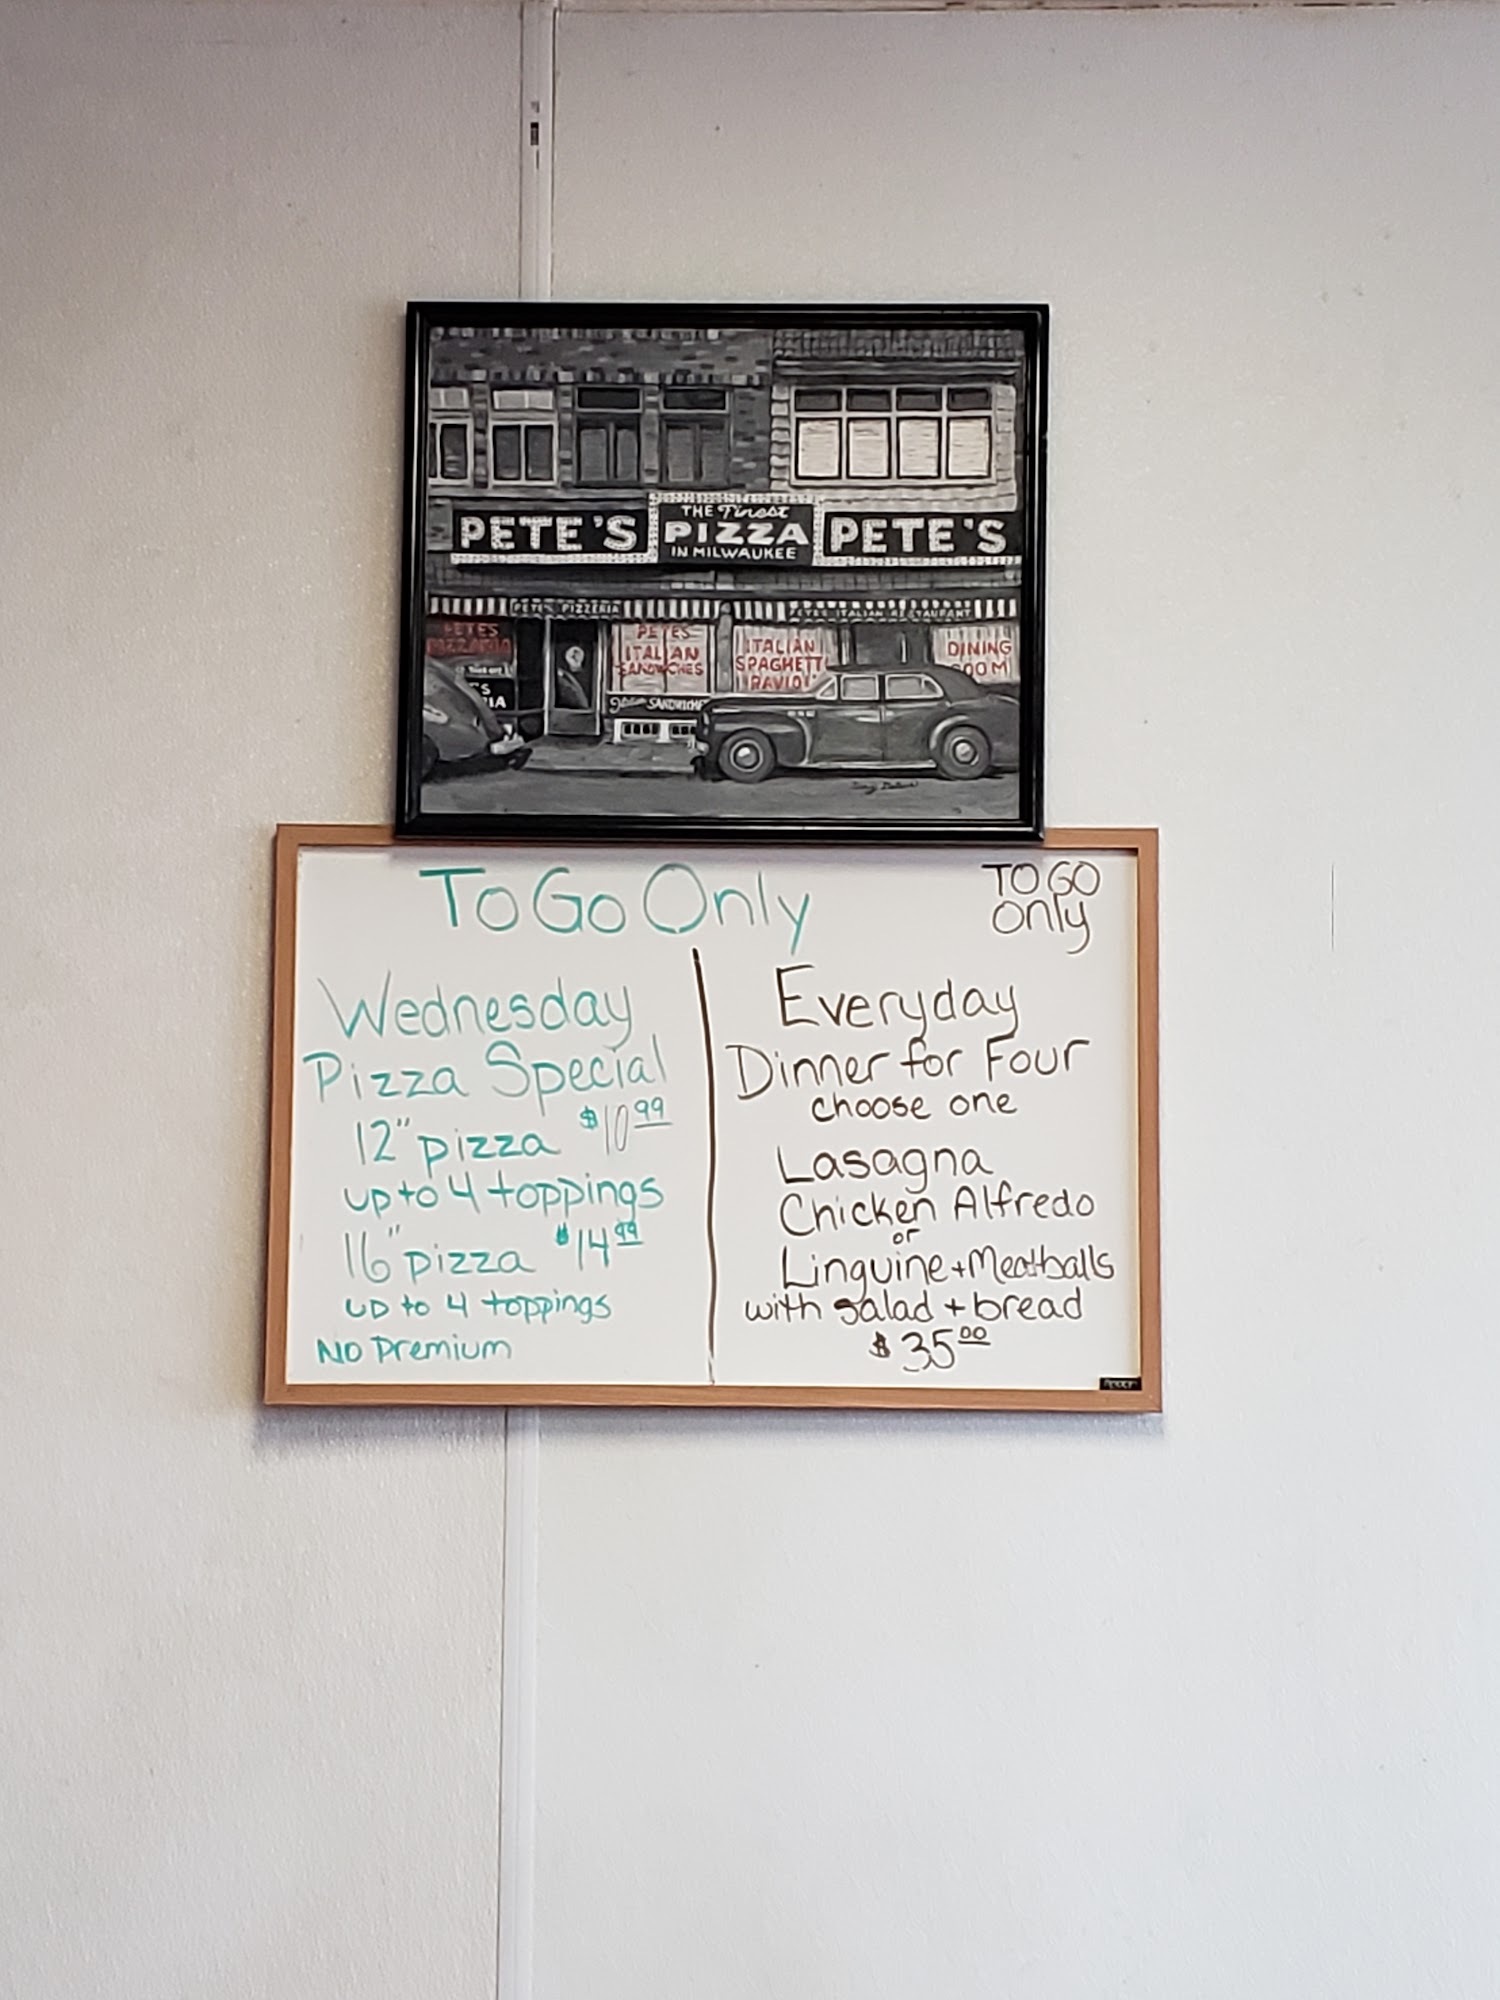 PETE'S
THE Finest
PIZZA
IN MILWAUKEE
PETE'S
PETE'S PIZZERIA
PETE'S ITALIAN RESTAURANT
PETES
PIZZERIA
PETES
ITALIAN
SANDWICHES
ITALIAN
SPAGHETTI
RAVIOI
DINING
OOM
'S
IA
SANDWICHE
To Go Only
TO GO
only
Wednesday
Pizza Special
12" pizza $10 99
up to 4 toppings
16" pizza $14 99
up to 4 toppings
NO Premium
Everyday
Dinner for Four
choose one
Lasagna
Chicken Alfredo
or
Linguine + Meatballs
with salad + bread
$35 00